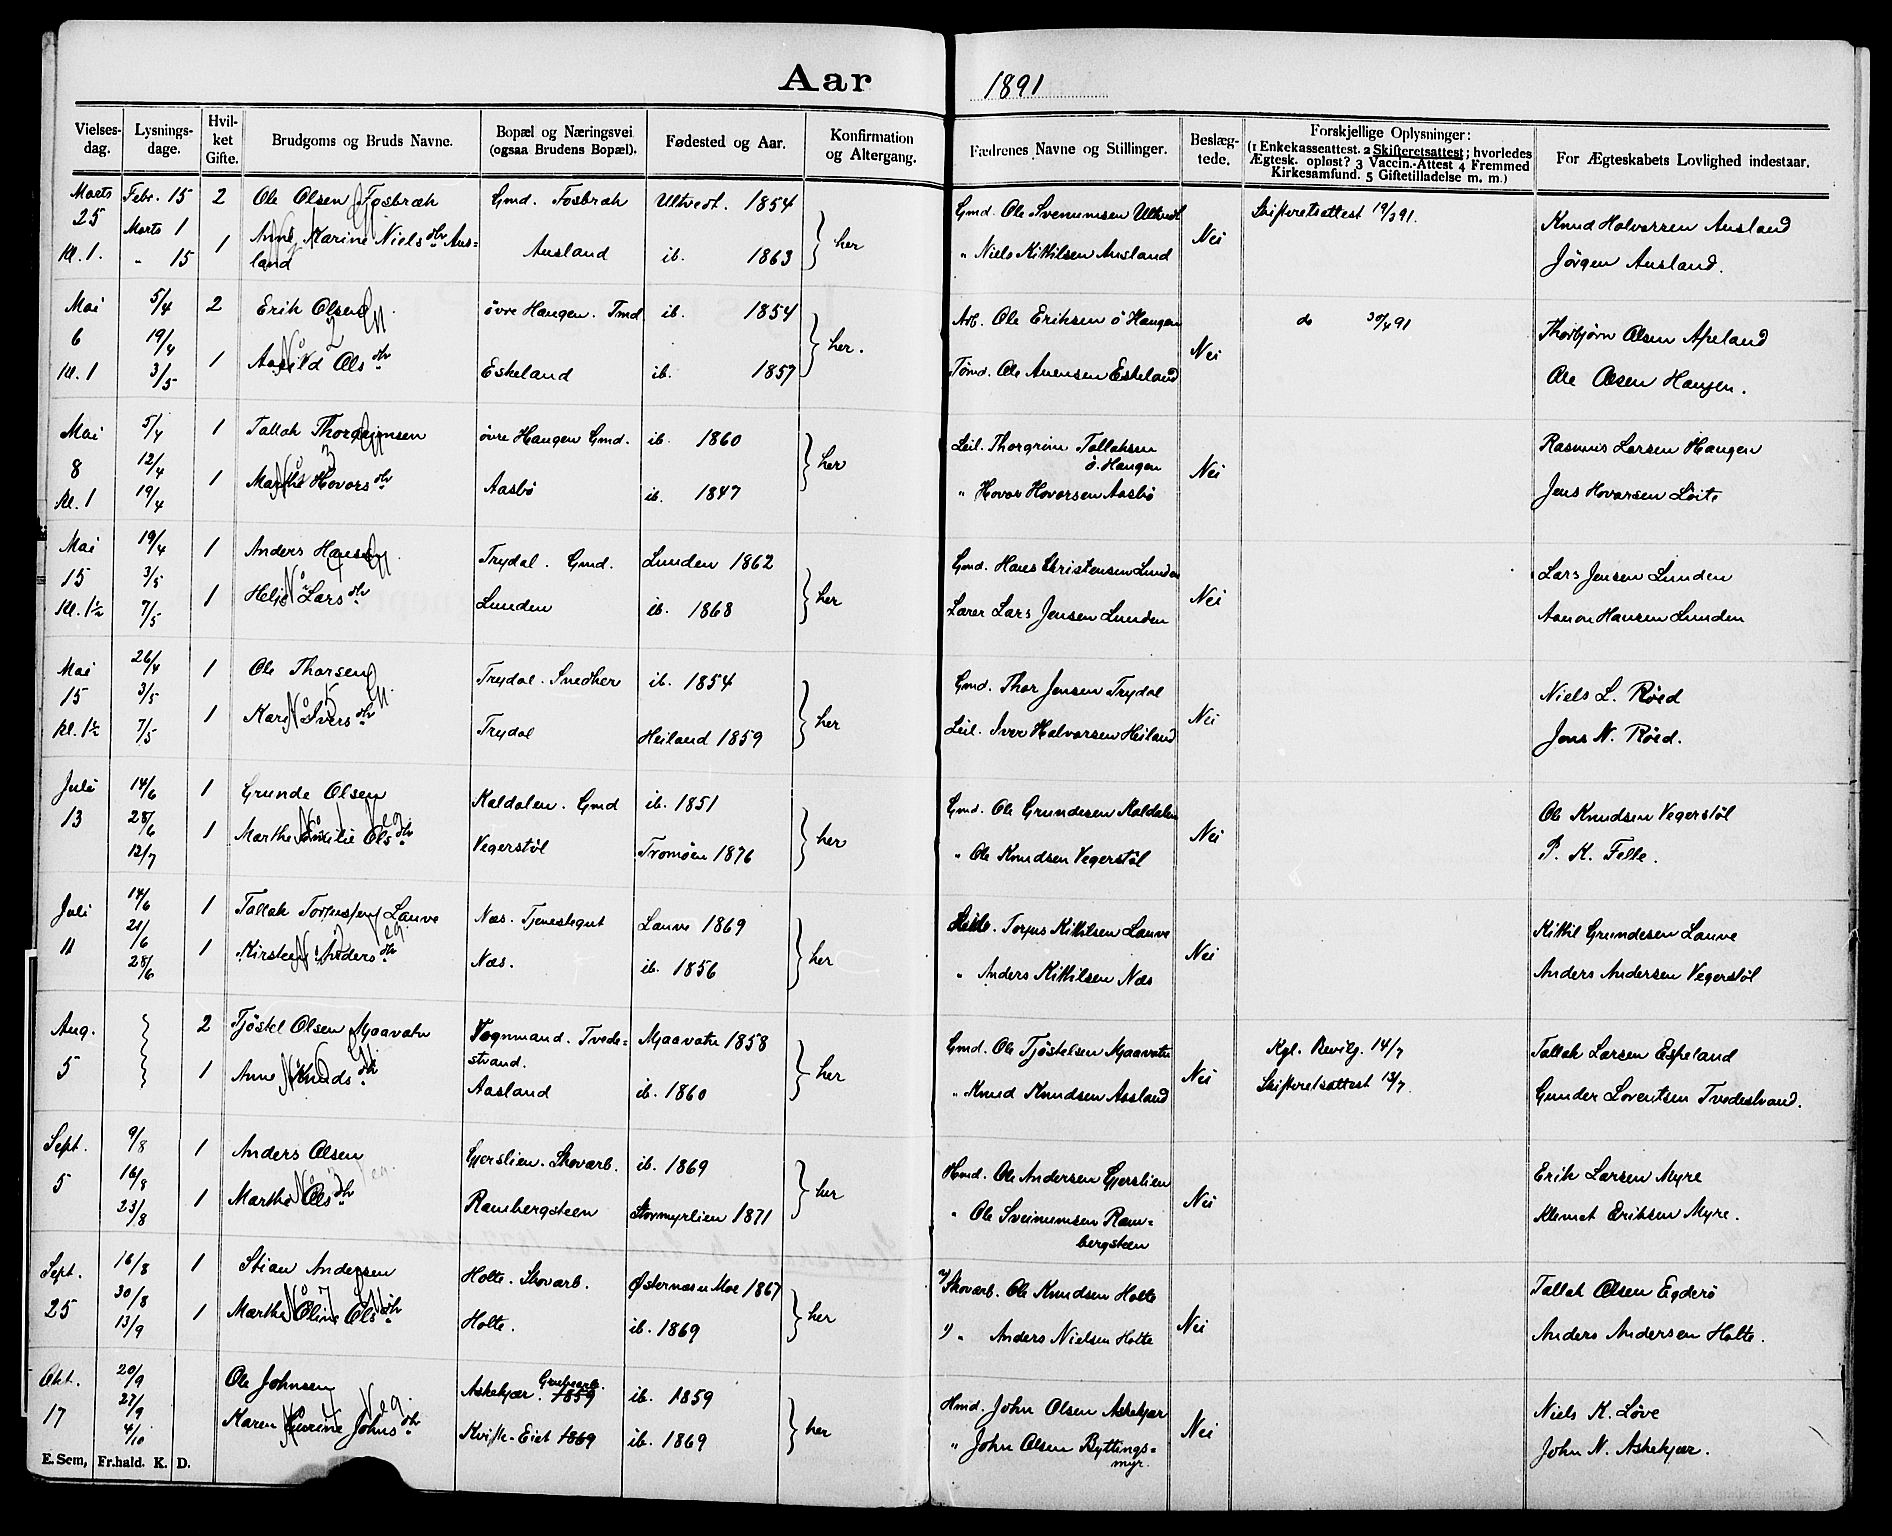 Aar 1891
Vielses-dag. Lysnings-dage. Hvil-ket Gifte. Brudgoms og Bruds Navne. Bopæl og Næringsvei (ogsaa Brudens Bopæl). Fødested og Aar. Konfirmation og Altergang. Fædrenes Navne og Stillinger. Beslæg-tede. Forskjellige Oplysninger: (1 Enkekasseattest. 2 Skifteretsattest; hvorledes Ægtesk. opløst? 3 Vaccin.-Attest 4 Fremmed Kirkesamfund. 5 Giftetilladelse m. m.) For Ægteskabets Lovlighed indestaar.
Marts Febr. 15 2 Ole Olsen Fosbræk Gmd. Fosbræk Ultvedt. 1854 Gmd. Ole Svenumsen Ultvedt Skifteretsattest 19/3 91. Knud Halvorsen Ausland
25 Marts 1 1 Anne Karine Niels dtr Aus= Ausland ib. 1863 her " Niels Kittilsen Ausland Nei Jörgen Ausland.
Kl. 1. " 15 land
Mai 5/4 2 Erik Olsen övre Haugen. Tmd ib. 1854 Arb. Ole Eriksen ö Haugen do 30/4 91 Thorbjörn Olsen Apeland
6 19/4 1 Aasild Ols dtr Eskeland ib. 1857 her. Tömd. Ole Auensen Eskeland Nei Ole Olsen Haugen.
Kl. 1 3/5
Mai 5/4 1 Tallak Thorgrimsen övre Haugen Gmd. ib. 1860 Leil. Thorgrim Tallaksen ö. Haugen Rasmus Larsen Haugen
8 12/4 1 Marthe Hovors dtr Aasbö ib. 1847 her " Hovor Hovorsen Aasbö Nei Jens Hovorsen Löite
Kl. 1 19/4
Mai 19/4 1 Anders Hansen Trydal. Gmd. Lunden 1862 Gmd. Hans Christensen Lunden Lars Jensen Lunden
15 3/5 1 Helje Lars dtr Lunden ib. 1868 her Lærer Lars Jensen Lunden Nei Aanon Hansen Lunden
Kl. 1½ 7/5
Mai 26/4 1 Ole Thorsen Trydal. Snedker ib. 1854 Gmd. Thor Jensen Trydal Niels L. Röed
15 3/5 1 Kari Ivers dtr Trydal Heiland 1859 her Leil. Iver Halvorsen Heiland Nei Jens N. Röed.
Kl. 1½ 7/5
Juli 14/6 1 Grunde Olsen Kaldalen. Gmd ib. 1851 Gmd. Ole Grundesen Kaldalen Ole Knudsen Vegerstöl
13 28/6 1 Marthe Emilie Ols dtr Vegerstöl Tromöen 1876 her " Ole Knudsen Vegerstöl Nei P. K. Felle.
12/7
Juli 14/6 1 Tallak Torjussen Lauve Næs. Tjenestegut Lauve 1869 Leil. Torjus Kittilsen Lauve Kittil Grundesen Lauve
11 21/6 1 Kirsten Anders dtr Næs. ib. 1856 her " Anders Kittilsen Næs Nei Anders Andersen Vegerstöl
28/6
Aug. 2 Tjöstel Olsen Mjaavatn Vognmand. Tvede=strand. Mjaavatn 1858 Gmd. Ole Tjöstelsen Mjaavatn Kgl. Bevilg. 14/7 Tallak Larsen Espeland
5 1 Anne Knuds dtr Aasland ib. 1860 her " Knud Knudsen Aasland Nei Skifteretsattest 13/7. Gunder Lorentsen Tvedestrand.
Sept. 9/8 1 Anders Olsen Gjerslien. Skovarb. ib. 1869 Hmd. Ole Andersen Gjerslien Erik Larsen Myre
5 16/8 1 Marthe Ols dtr Rambergsteen Stormyrlien 1871 her " Ole Sveinumsen Ram=bergsteen Nei Klemet Eriksen Myre.
23/8
Sept. 16/8 1 Stian Andersen Holte. Skovarb. Østernæs u Moe 1867 2) Skovarb. Ole Knudsen Holte Tallak Olsen Egderö
25 30/8 1 Marthe Oline Ols dtr Holte. ib. 1869 her 1) " Anders Nielsen Holte Nei Anders Andersen Holte.
13/9
Okt. 20/9 Ole Johnsen Askekjær. Grubearb. 1859 ib. 1859 Hmd. John Olsen Askekjær Niels K. Löve
17 27/9 Karen Johns dtr Kvifte-Eiet 1869 ib. 1869 her " John Olsen Byttings=myr. Nei John N. Askekjær.
4/10
E. Sem, Fr.hald. K. D.